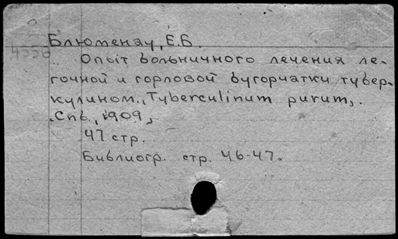 Блюменау, Е.Б.
Опыт больничного лечения ле-
гочной и горловой бугорчатки тубер-
кулином "Tyberculinum purum".
Спб., 1909,
47 стр.
Библиогр. стр. 46-47.